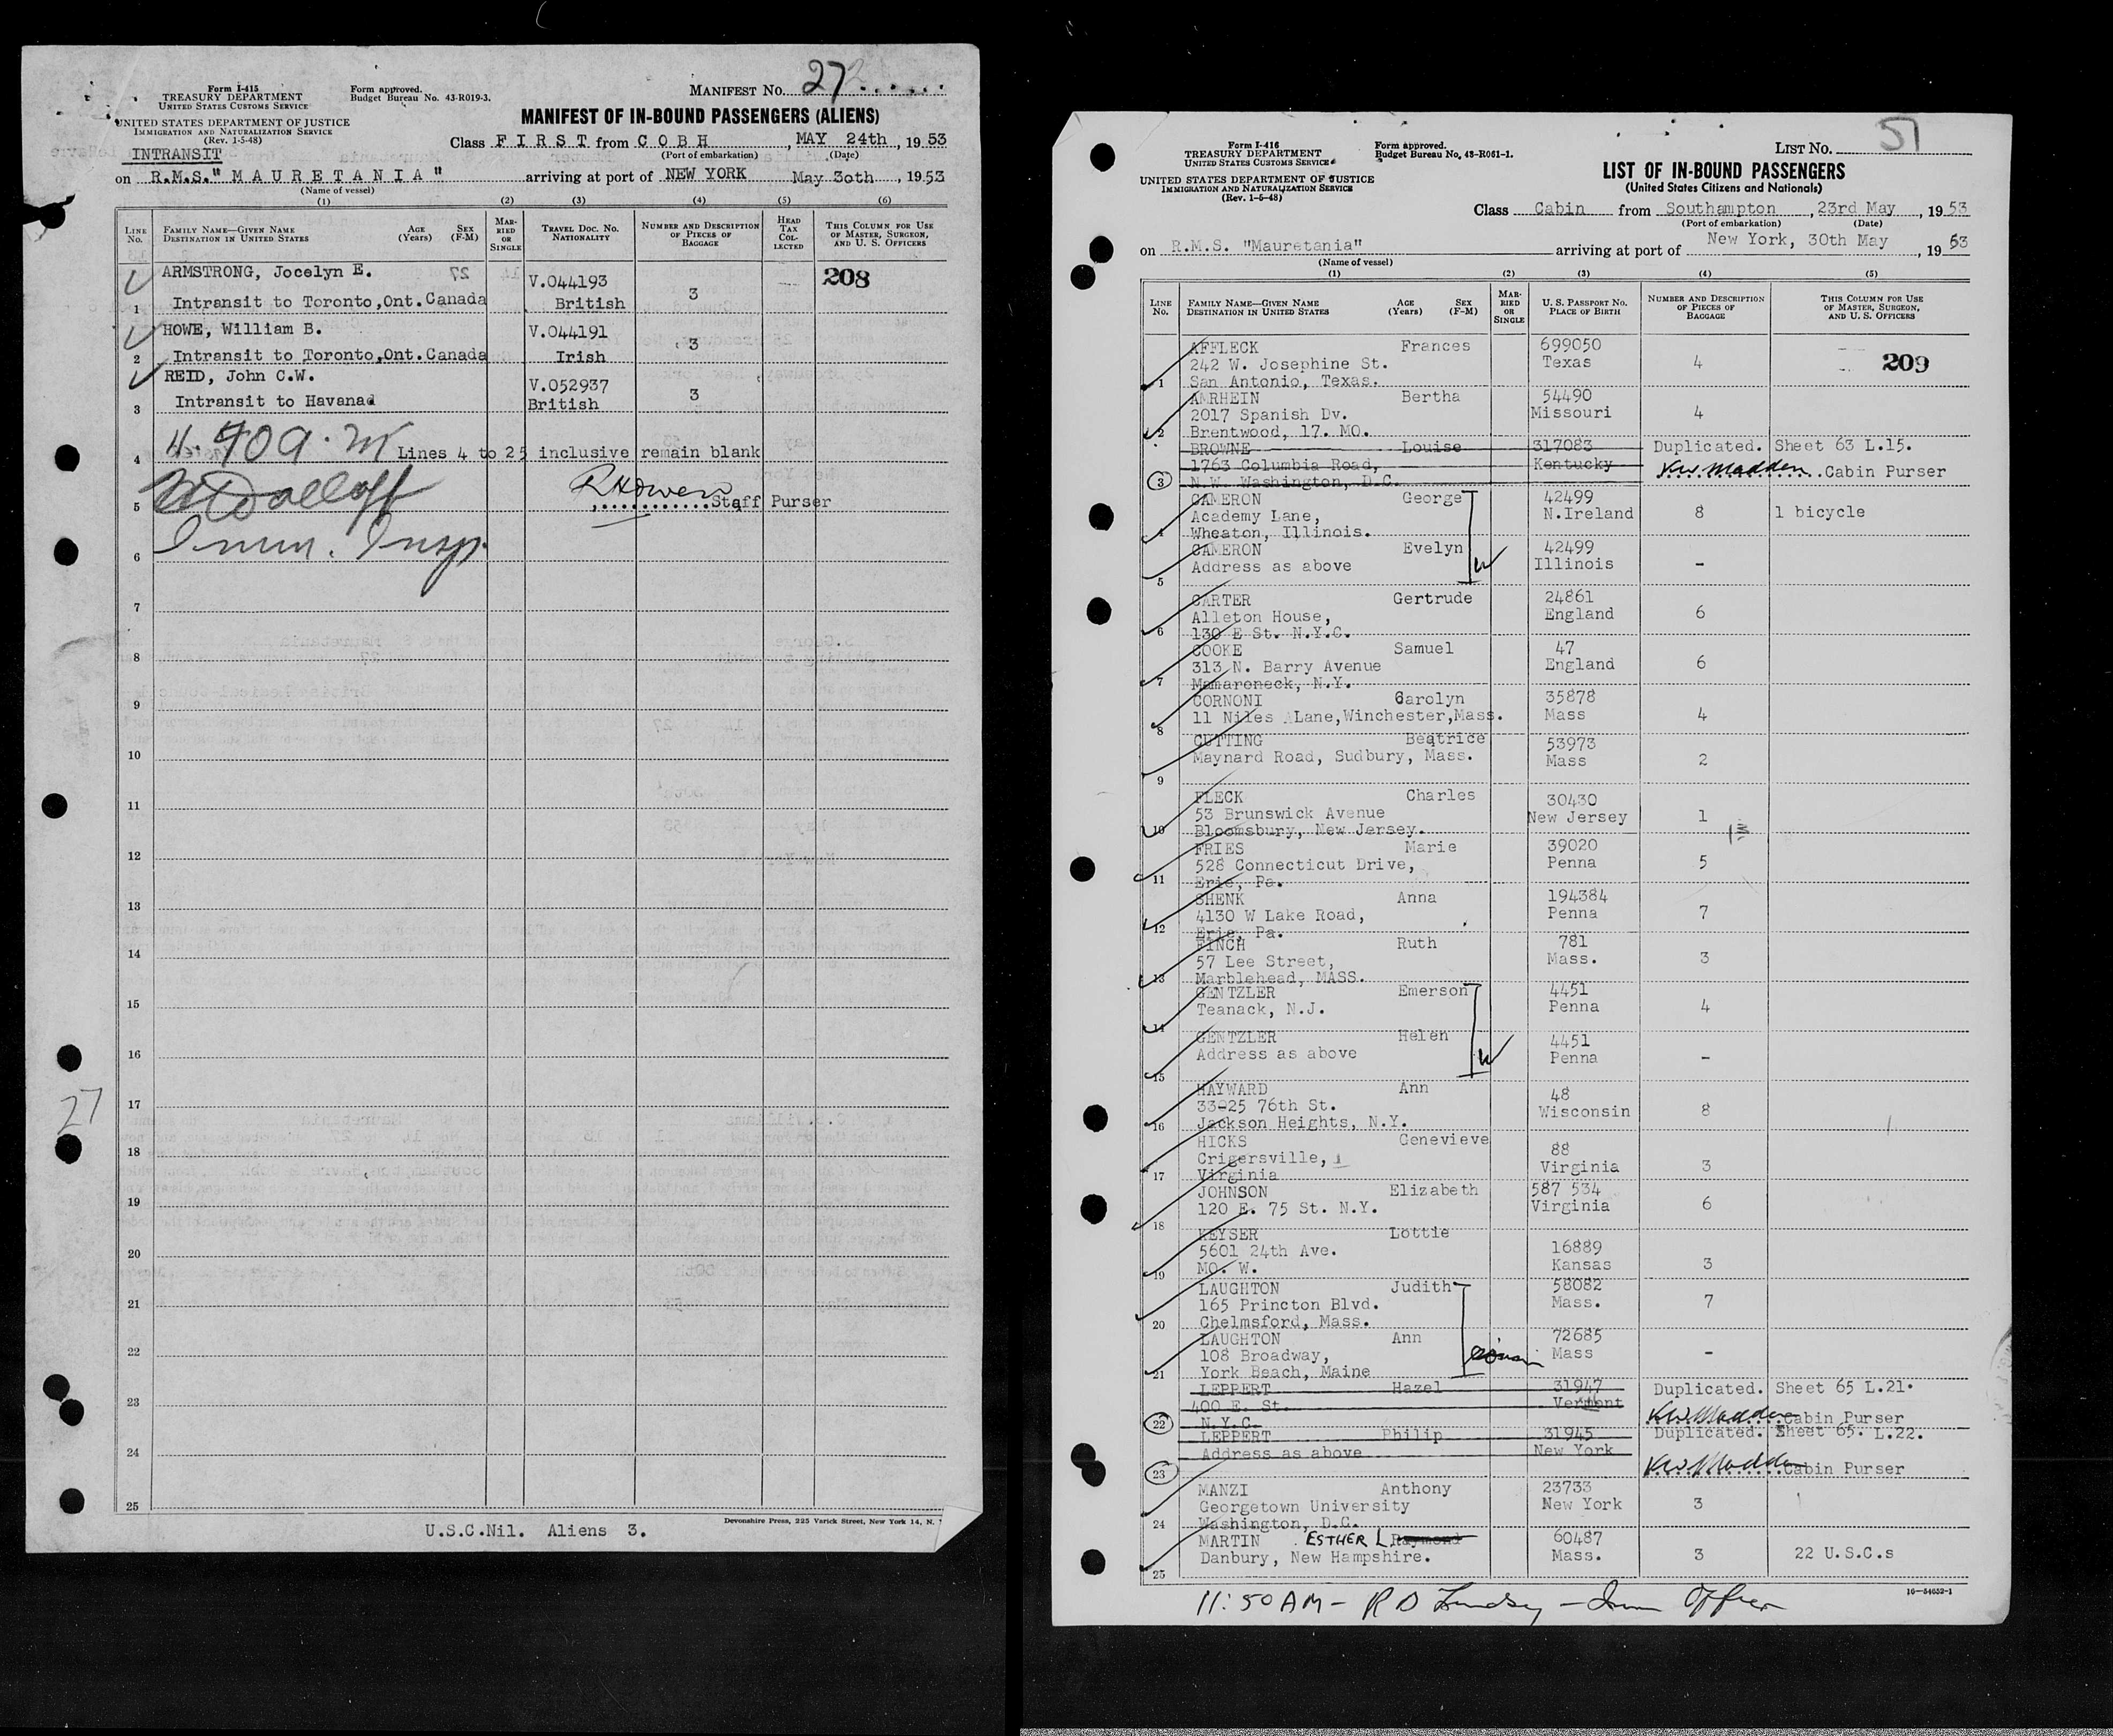 Form I-415
TREASURY DEPARTMENT
UNITED STATES CUSTOMS SERVICE
Form approved.
Budget Bureau No. 43-R019-3.
MANIFEST No. 27
UNITED STATES DEPARTMENT OF JUSTICE
IMMIGRATION AND NATURALIZATION SERVICE
(Rev. 1-5-48)
MANIFEST OF IN-BOUND PASSENGERS (ALIENS)
INTRANSIT
Class F I R S T from C O B H , MAY 24th , 19 53
(Port of embarkation) (Date)
on R.M.S." M A U R E T A N I A " arriving at port of NEW YORK May 30th , 1953
(Name of vessel)
(1) (2) (3) (4) (5) (6)
LINE No. FAMILY NAME—GIVEN NAME DESTINATION IN UNITED STATES AGE (Years) SEX (F-M) MARRIED OR SINGLE TRAVEL DOC. NO. NATIONALITY NUMBER AND DESCRIPTION OF PIECES OF BAGGAGE HEAD TAX COLLECTED THIS COLUMN FOR USE OF MASTER, SURGEON, AND U. S. OFFICERS
ARMSTRONG, Jocelyn E. V.044193 208
1 Intransit to Toronto,Ont.Canada British 3
HOWE, William B. V.044191
2 Intransit to Toronto,Ont.Canada Irish 3
REID, John C.W. V.052937
3 Intransit to Havanad British 3
4 Lines 4 to 25 inclusive remain blank
5 RHOwen Staff Purser
Imm. Insp.
6
7
8
9
10
11
12
13
14
15
16
27
17
18
19
20
21
22
23
24
25
U.S.C.Nil. Aliens 3.
Devonshire Press, 225 Varick Street, New York 14, N.
Form I-416
TREASURY DEPARTMENT
UNITED STATES CUSTOMS SERVICE
Form approved.
Budget Bureau No. 43-R061-1.
LIST No. 51
UNITED STATES DEPARTMENT OF JUSTICE
IMMIGRATION AND NATURALIZATION SERVICE
(Rev. 1-5-48)
LIST OF IN-BOUND PASSENGERS
(United States Citizens and Nationals)
Class Cabin from Southampton , 23rd May , 19 53
(Port of embarkation) (Date)
on R.M.S. "Mauretania" arriving at port of New York, 30th May , 19 53
(Name of vessel)
(1) (2) (3) (4) (5)
LINE No. FAMILY NAME—GIVEN NAME DESTINATION IN UNITED STATES AGE (Years) SEX (F-M) MARRIED OR SINGLE U. S. PASSPORT NO. PLACE OF BIRTH NUMBER AND DESCRIPTION OF PIECES OF BAGGAGE THIS COLUMN FOR USE OF MASTER, SURGEON, AND U. S. OFFICERS
AFFLECK Frances 699050
242 W. Josephine St. Texas 4 209
1 San Antonio, Texas.
AMRHEIN Bertha 54490
2017 Spanish Dv. Missouri 4
2 Brentwood, 17. MO.
BROWNE Louise 317083 Duplicated. Sheet 63 L.15.
1763 Columbia Road, Kentucky KW Madden Cabin Purser
3 N.W. Washington, D.C.
CAMERON George 42499
Academy Lane, N.Ireland 8 1 bicycle
4 Wheaton, Illinois.
CAMERON Evelyn 42499
Address as above W Illinois -
5
CARTER Gertrude 24861
Alleton House, England 6
6 130 E St. N.Y.C.
COOKE Samuel 47
313 N. Barry Avenue England 6
7 Mamaroneck, N.Y.
CORNONI Carolyn 35878
11 Niles Lane,Winchester,Mass. Mass 4
8
CUTTING Beatrice 53973
Maynard Road, Sudbury, Mass. Mass 2
9
FLECK Charles 30430
53 Brunswick Avenue New Jersey 1
10 Bloomsbury, New Jersey.
FRIES Marie 39020
528 Connecticut Drive, Penna 5
11 Erie, Pa.
SHENK Anna 194384
4130 W Lake Road, Penna 7
12 Erie, Pa.
FINCH Ruth 781
57 Lee Street, Mass. 3
13 Marblehead, MASS.
GENTZLER Emerson 4451
Teanack, N.J. Penna 4
14
GENTZLER Helen 4451
Address as above W Penna -
15
HAYWARD Ann 48
33-25 76th St. Wisconsin 8
16 Jackson Heights, N.Y.
HICKS Genevieve 88
Crigersville, Virginia 3
17 Virginia
JOHNSON Elizabeth 587 534
120 E. 75 St. N.Y. Virginia 6
18
KEYSER Lottie
5601 24th Ave. 16889
19 MO. W. Kansas 3
LAUGHTON Judith 58082
165 Princton Blvd. Mass. 7
20 Chelmsford, Mass.
LAUGHTON Ann 72685
108 Broadway, Mass -
21 York Beach, Maine
LEPPERT Hazel 31947 Duplicated. Sheet 65 L.21.
400 E. St. Vermont KW Madden Cabin Purser
22 N.Y.C.
LEPPERT Philip 31945 Duplicated. Sheet 65. L.22.
Address as above New York
23 KW Madden Cabin Purser
MANZI Anthony 23733
Georgetown University New York 3
24 Washington, D.C.
MARTIN ESTHER L Raymond 60487
Danbury, New Hampshire. Mass. 3 22 U.S.C.s
25
16—54652-1
11:50 AM - R D Lindsey - Imm Officer